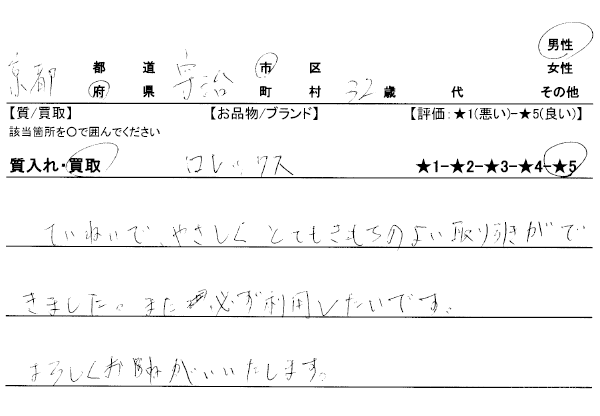 男性
京都 都 道 宇治 市 区 女性
府 県 町 村 32 歳 代 その他
【質/買取】 【お品物/ブランド】 【評価:★1(悪い)-★5(良い)】
該当箇所を〇で囲んでください
質入れ・買取 ロレックス ★1-★2-★3-★4-★5
ていねいで、やさしく とてもきもちのよい取り引きがで
きました。また 必ず利用したいです。
よろしくお願がいいたします。